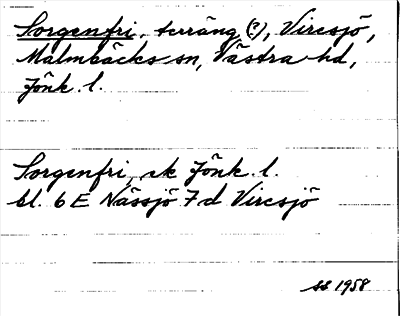 Sorgenfri, terräng (?), Viresjö,
Malmbäcks sn, Västra hd,
Jönk. l.
Sorgenfri, ek Jönk. l.
bl. 6 E Nässjö 7 d Viresjö
SS 1958